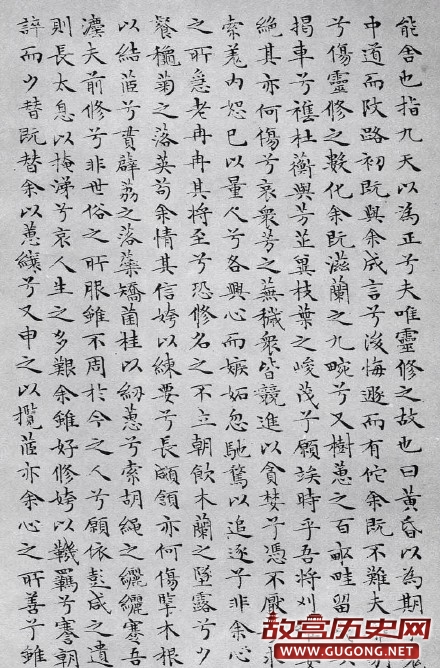 能舍也指九天以為正兮夫唯靈修之故也曰黃昏以為期
中道而改路初既與余成言兮後悔遯而有佗余既不難夫
兮傷靈修之數化余既滋蘭之九畹兮又樹蕙之百畝畦留
揭車兮襍杜蘅與芳芷冀枝葉之峻茂兮願竢時乎吾將刈
絕其亦何傷兮哀衆芳之蕪穢衆皆競進以貪婪兮憑不厭
索羌內恕己以量人兮各興心而嫉妬忽馳騖以追逐兮非余心
之所急老冉冉其將至兮恐修名之不立朝飲木蘭之墜露兮夕
餐穐菊之落英苟余情其信姱以練要兮長顑頷亦何傷擥木根
以結茝兮貫薜荔之落蘂矯菌桂以紉蕙兮索胡繩之纚纚謇吾
灋夫前修兮非世俗之所服雖不周於今之人兮願依彭咸之遺
則長太息以掩涕兮哀人生之多艱余雖好修姱以鞿羈兮謇朝
誶而夕替既替余以蕙纕兮又申之以攬茝亦余心之所善兮雖
故宫历史网
www.GUGONG.NET